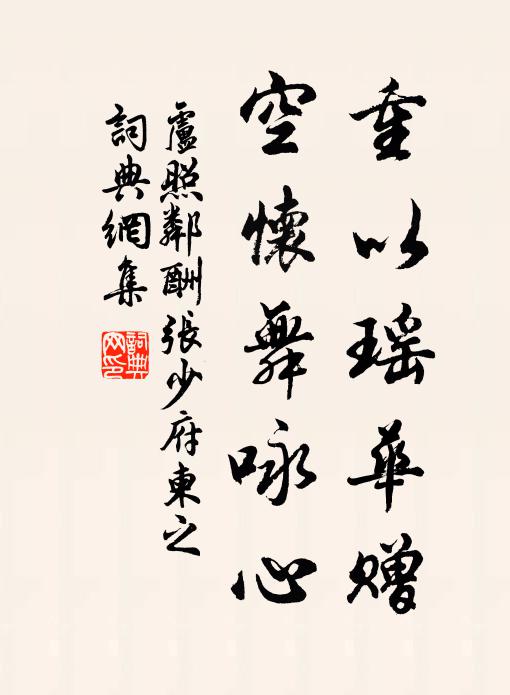 重以瑶華贈
空懷舞咏心
盧照鄰酬張少府東之
詞典網集
詞典網印